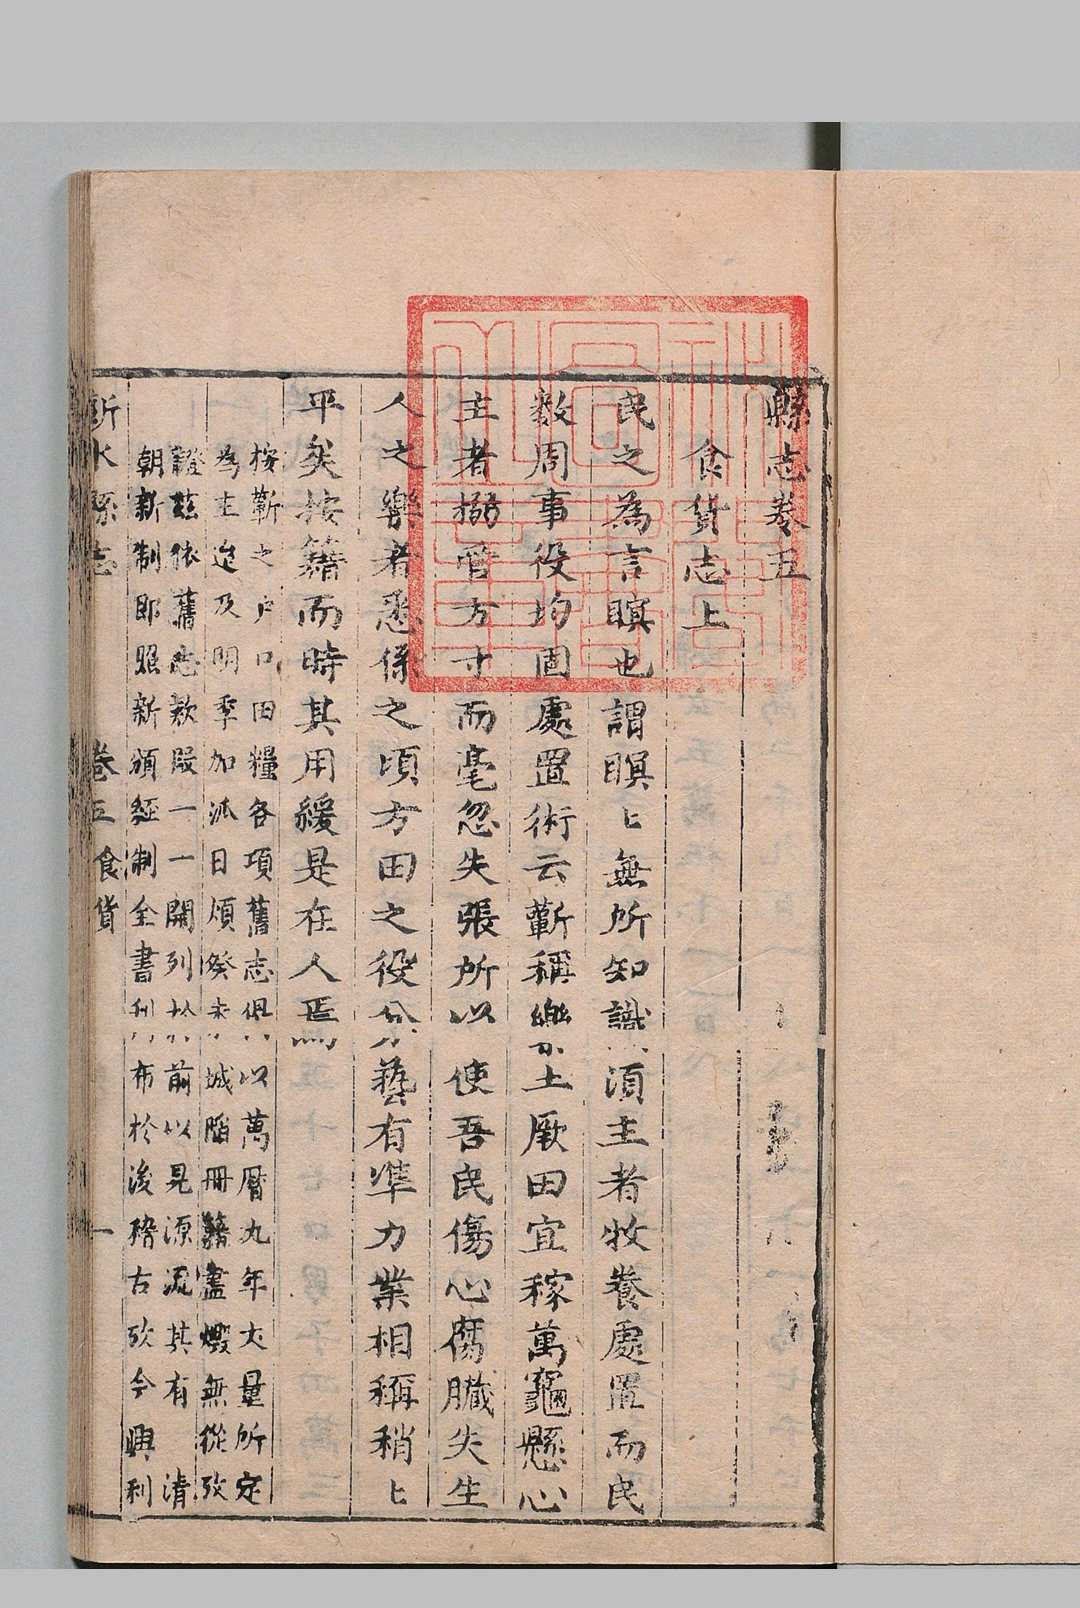 縣志卷五
食貨志上
民之為言瞑也謂瞑匕無所知識須主者牧養處置而民
数周事役均固處置術云蘄稱樂土厥田宜稼萬竈懸心
主者搦管方寸而毫忽失張所以使吾民傷心腐臟失生
人之樂者悉係之頃方田之役分藝有準力業相稱稍匕
平矣按籍而時其用緩是在人焉
按蘄之户口田糧各項舊志俱以萬曆九年丈量所定
為主迨及明季加派日煩癸未城陷冊籍盡燬無從攷
證兹依舊志欵段一一開列於前以見源流其有 清
朝新制即照新頒經制全書刊布於後稽古攷今興利
蘄水縣志 卷五食貨 一